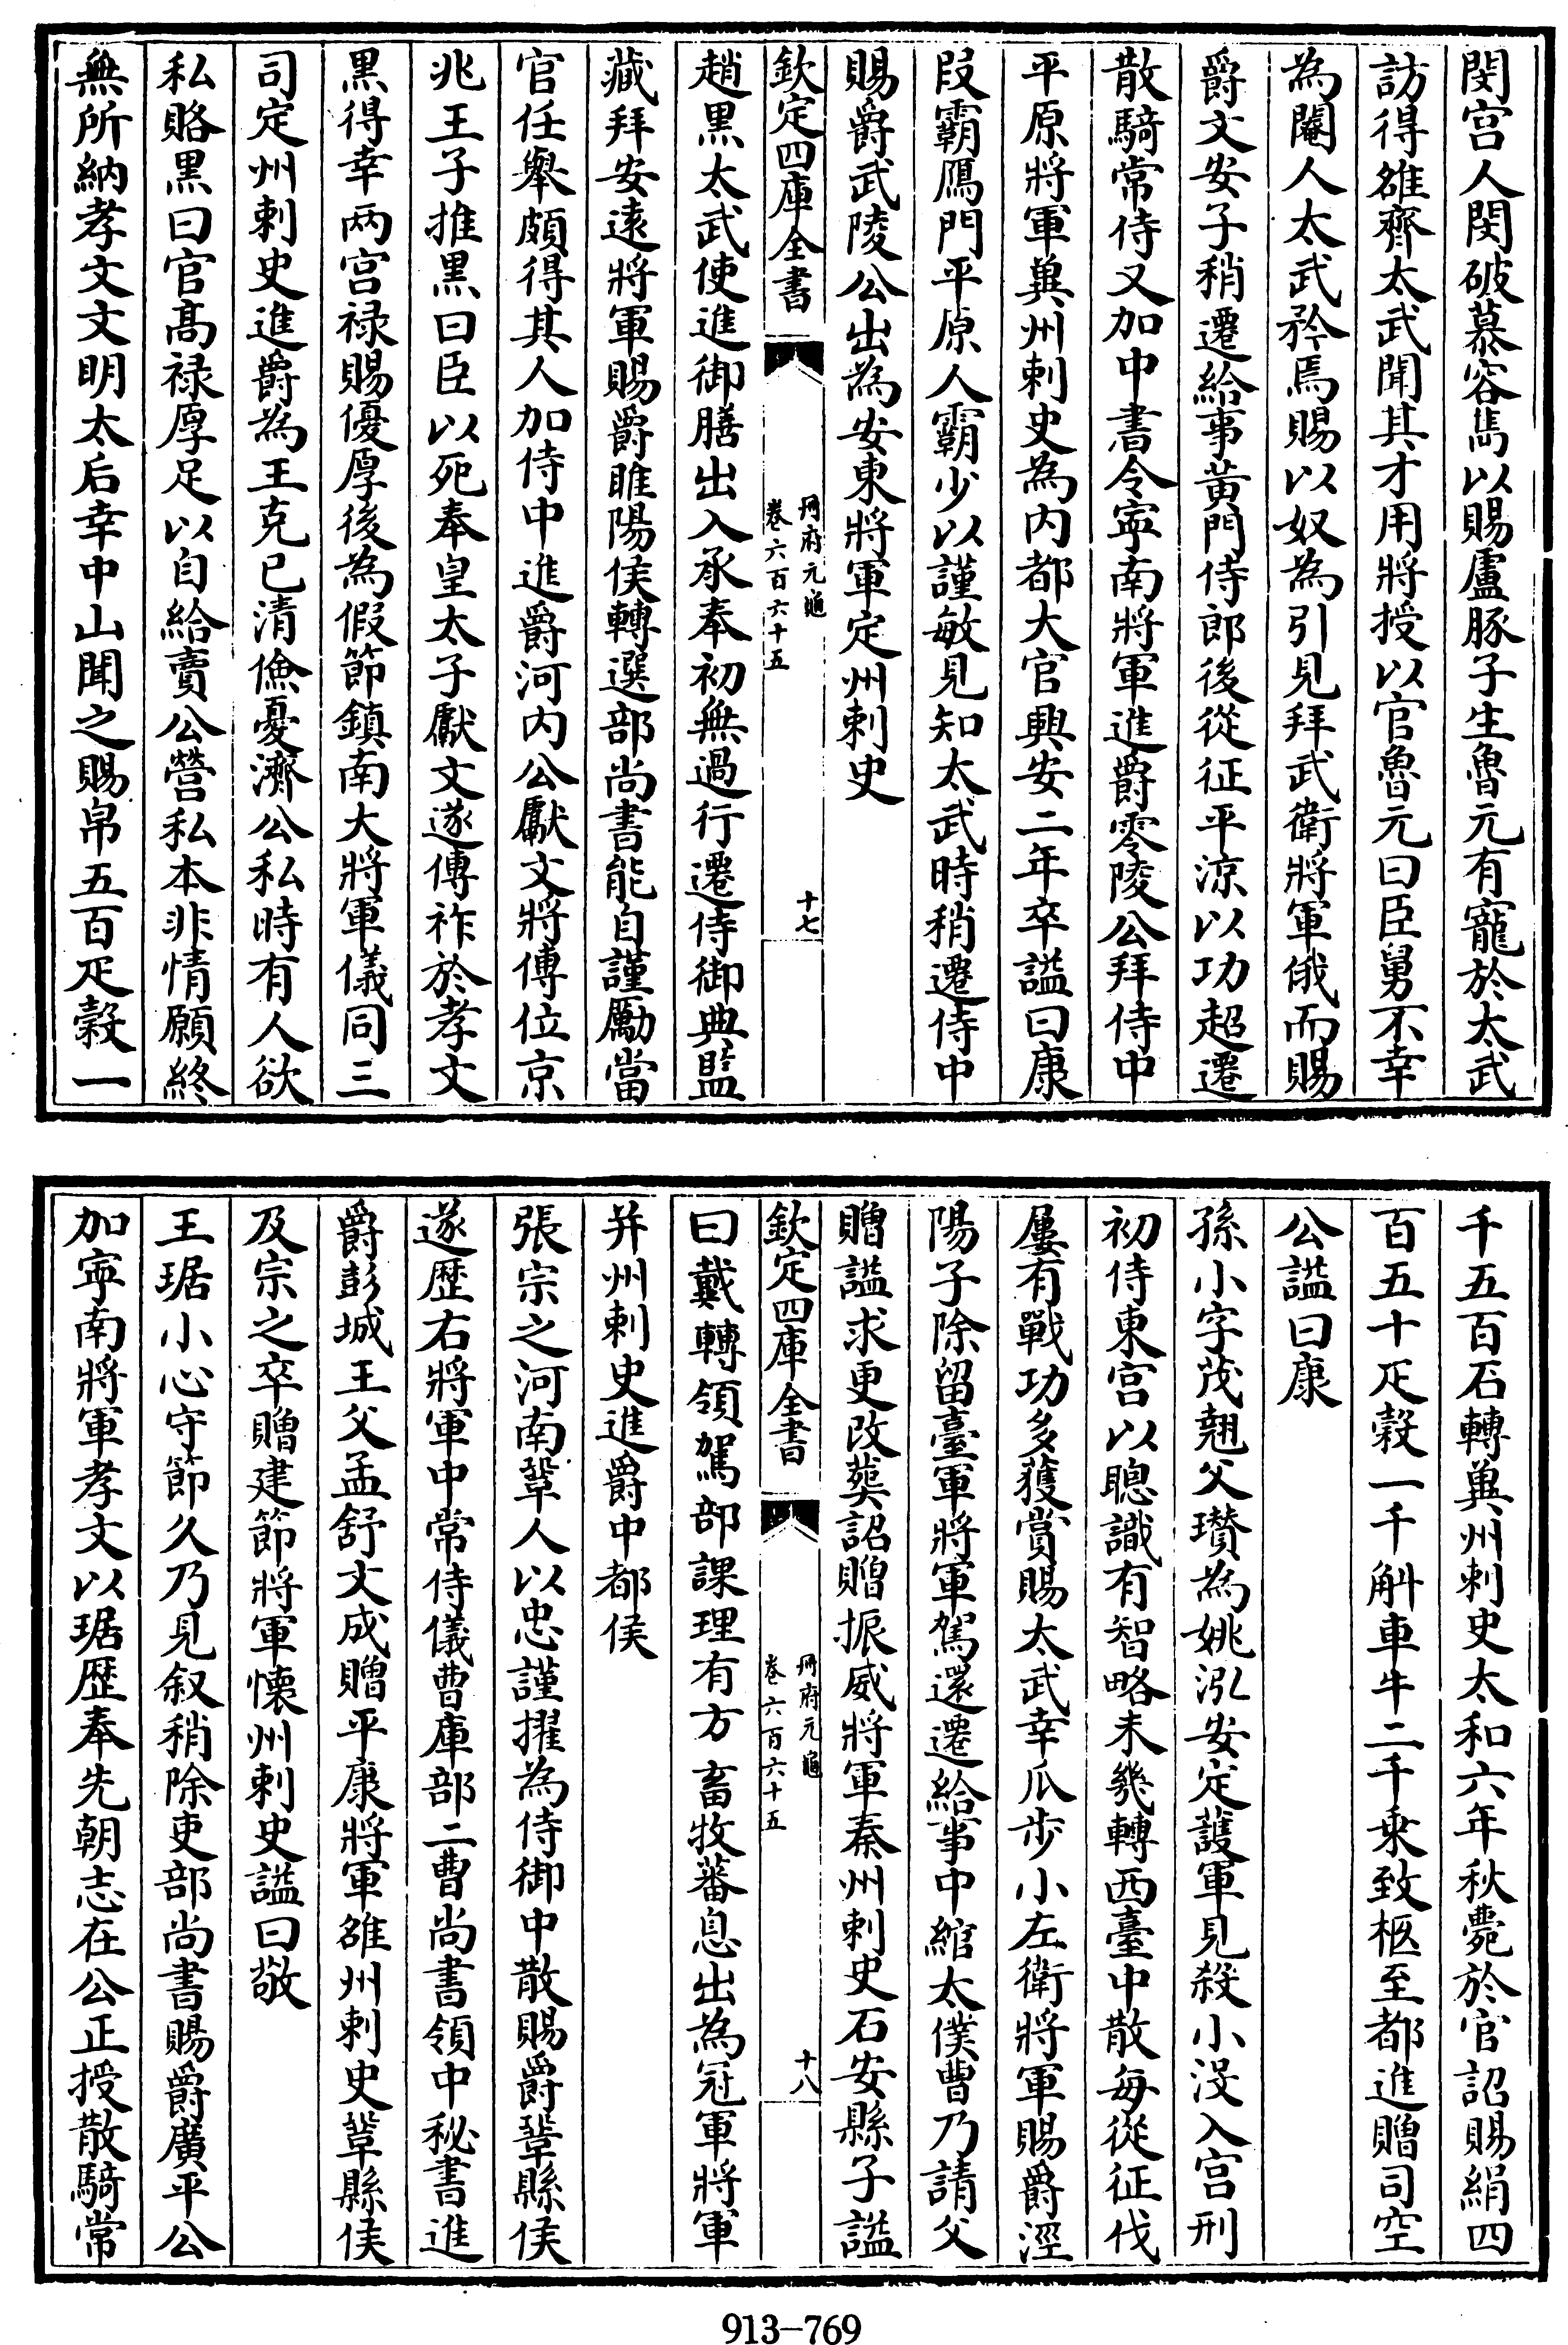 閔宫人閔破慕容雋以賜盧豚子生魯元有寵於太武
訪得雒齊太武聞其才用將授以官魯元曰臣舅不幸
為閹人太武矜焉賜以奴為引見拜武衛將軍俄而賜
爵文安子稍遷給事黄門侍郎後從征平涼以功超遷
散騎常侍又加中書令寜南將軍進爵零陵公拜侍中
平原將軍兾州刺史為内都大官興安二年卒諡曰康
段霸鴈門平原人霸少以謹敏見知太武時稍遷侍中
賜爵武陵公出為安東將軍定州刺史
欽定四庫全書
冊府元龜
卷六百六十五
十七
趙黒太武使進御膳出入承奉初無過行遷侍御典監
藏拜安逺將軍賜爵睢陽侯轉選部尚書能自謹勵當
官任舉頗得其人加侍中進爵河内公獻文將傳位京
兆王子推黒曰臣以死奉皇太子獻文遂傳祚於孝文
黒得幸两宫禄賜優厚後為假節鎮南大將軍儀同三
司定州刺史進爵為王克已清儉憂濟公私時有人欲
私賂黒曰官髙禄厚足以自給賣公營私本非情願終
無所納孝文文明太后幸中山聞之賜帛五百疋穀一
千五百石轉兾州刺史太和六年秋薨於官詔賜絹四
百五十疋穀一千斛車牛二千乗致柩至都進贈司空
公諡曰康
孫小字茂翹父瓚為姚泓安定護軍見殺小沒入宫刑
初侍東宫以聰識有智略未幾轉西臺中散每從征伐
屢有戰功多獲賞賜太武幸瓜步小左衛將軍賜爵涇
陽子除留臺軍將軍駕還遷給事中綰太僕曹乃請父
贈諡求更改葬詔贈振威將軍秦州刺史石安縣子諡
欽定四庫全書
冊府元龜
卷六百六十五
十八
曰戴轉領駕部課理有方畜牧蕃息出為冠軍將軍
并州刺史進爵中都侯
張宗之河南鞏人以忠謹擢為侍御中散賜爵鞏縣侯
遂歴右將軍中常侍儀曹庫部二曹尚書領中秘書進
爵彭城王父孟舒文成贈平康將軍雒州刺史鞏縣侯
及宗之卒贈建節將軍懐州刺史諡曰敬
王琚小心守節久乃見叙稍除吏部尚書賜爵廣平公
加寜南將軍孝文以琚歴奉先朝志在公正授散騎常
913-769